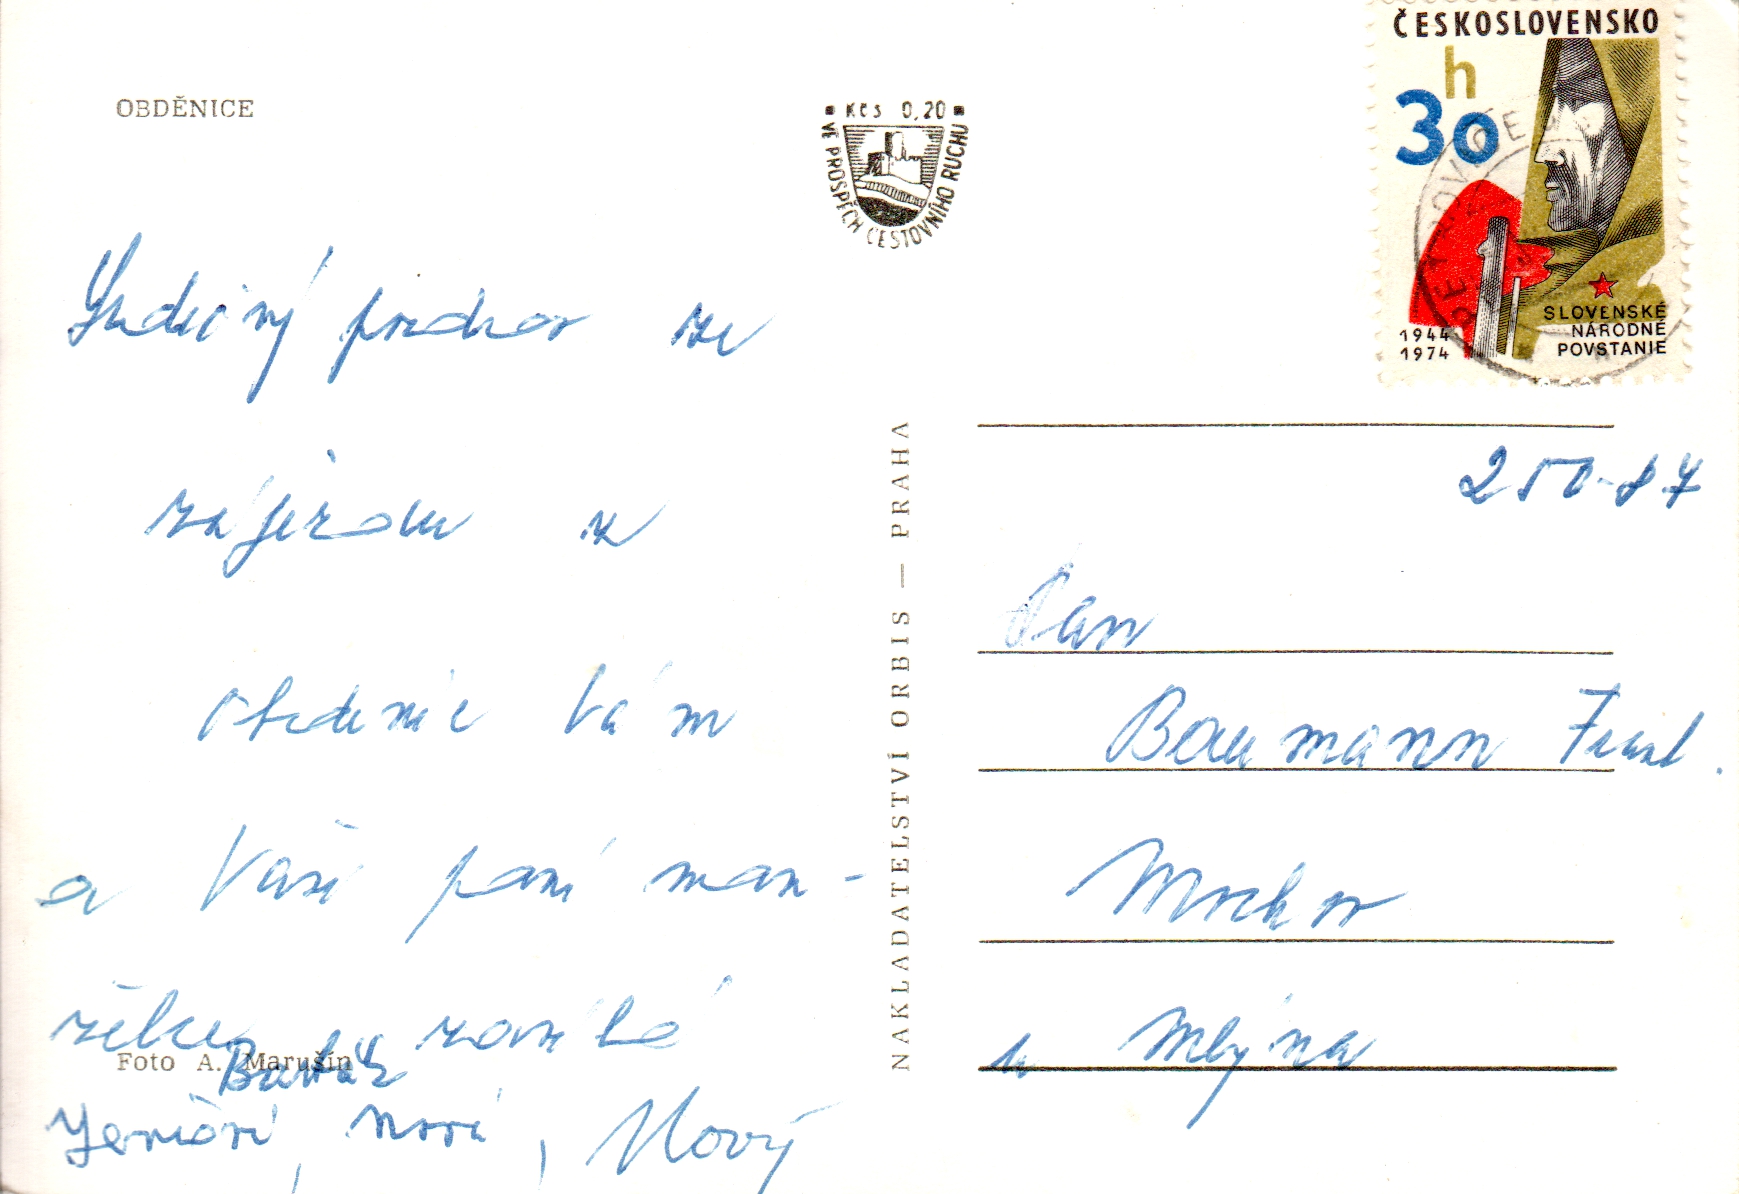 OBDĚNICE
Kčs 0,20
VE PROSPĚCH CESTOVNÍHO RUCHU
ČESKOSLOVENSKO
30 h
1944
1974
SLOVENSKÉ
NÁRODNÉ
POVSTANIE
Srdečný pozdrav ze
zájezdu z
Obdenic Vám
a Vaší paní man-
želce zasílá
Foto A. Marušín
Barták
Nový
NAKLADATELSTVÍ ORBIS — PRAHA
250-87
Pan
Baumann Frant.
Mochov
u Mlýna